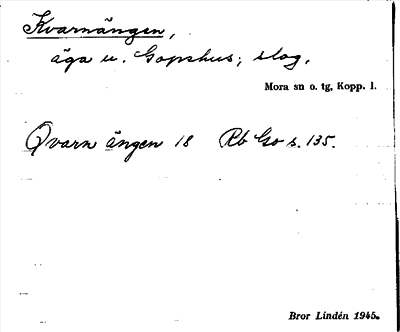 Kvarnängen,
äga u. Gopshus; slog.
Mora sn o. tg, Kopp. l.
Qvarn ängen 18 Rb Go s. 135.
Bror Lindén 1945.